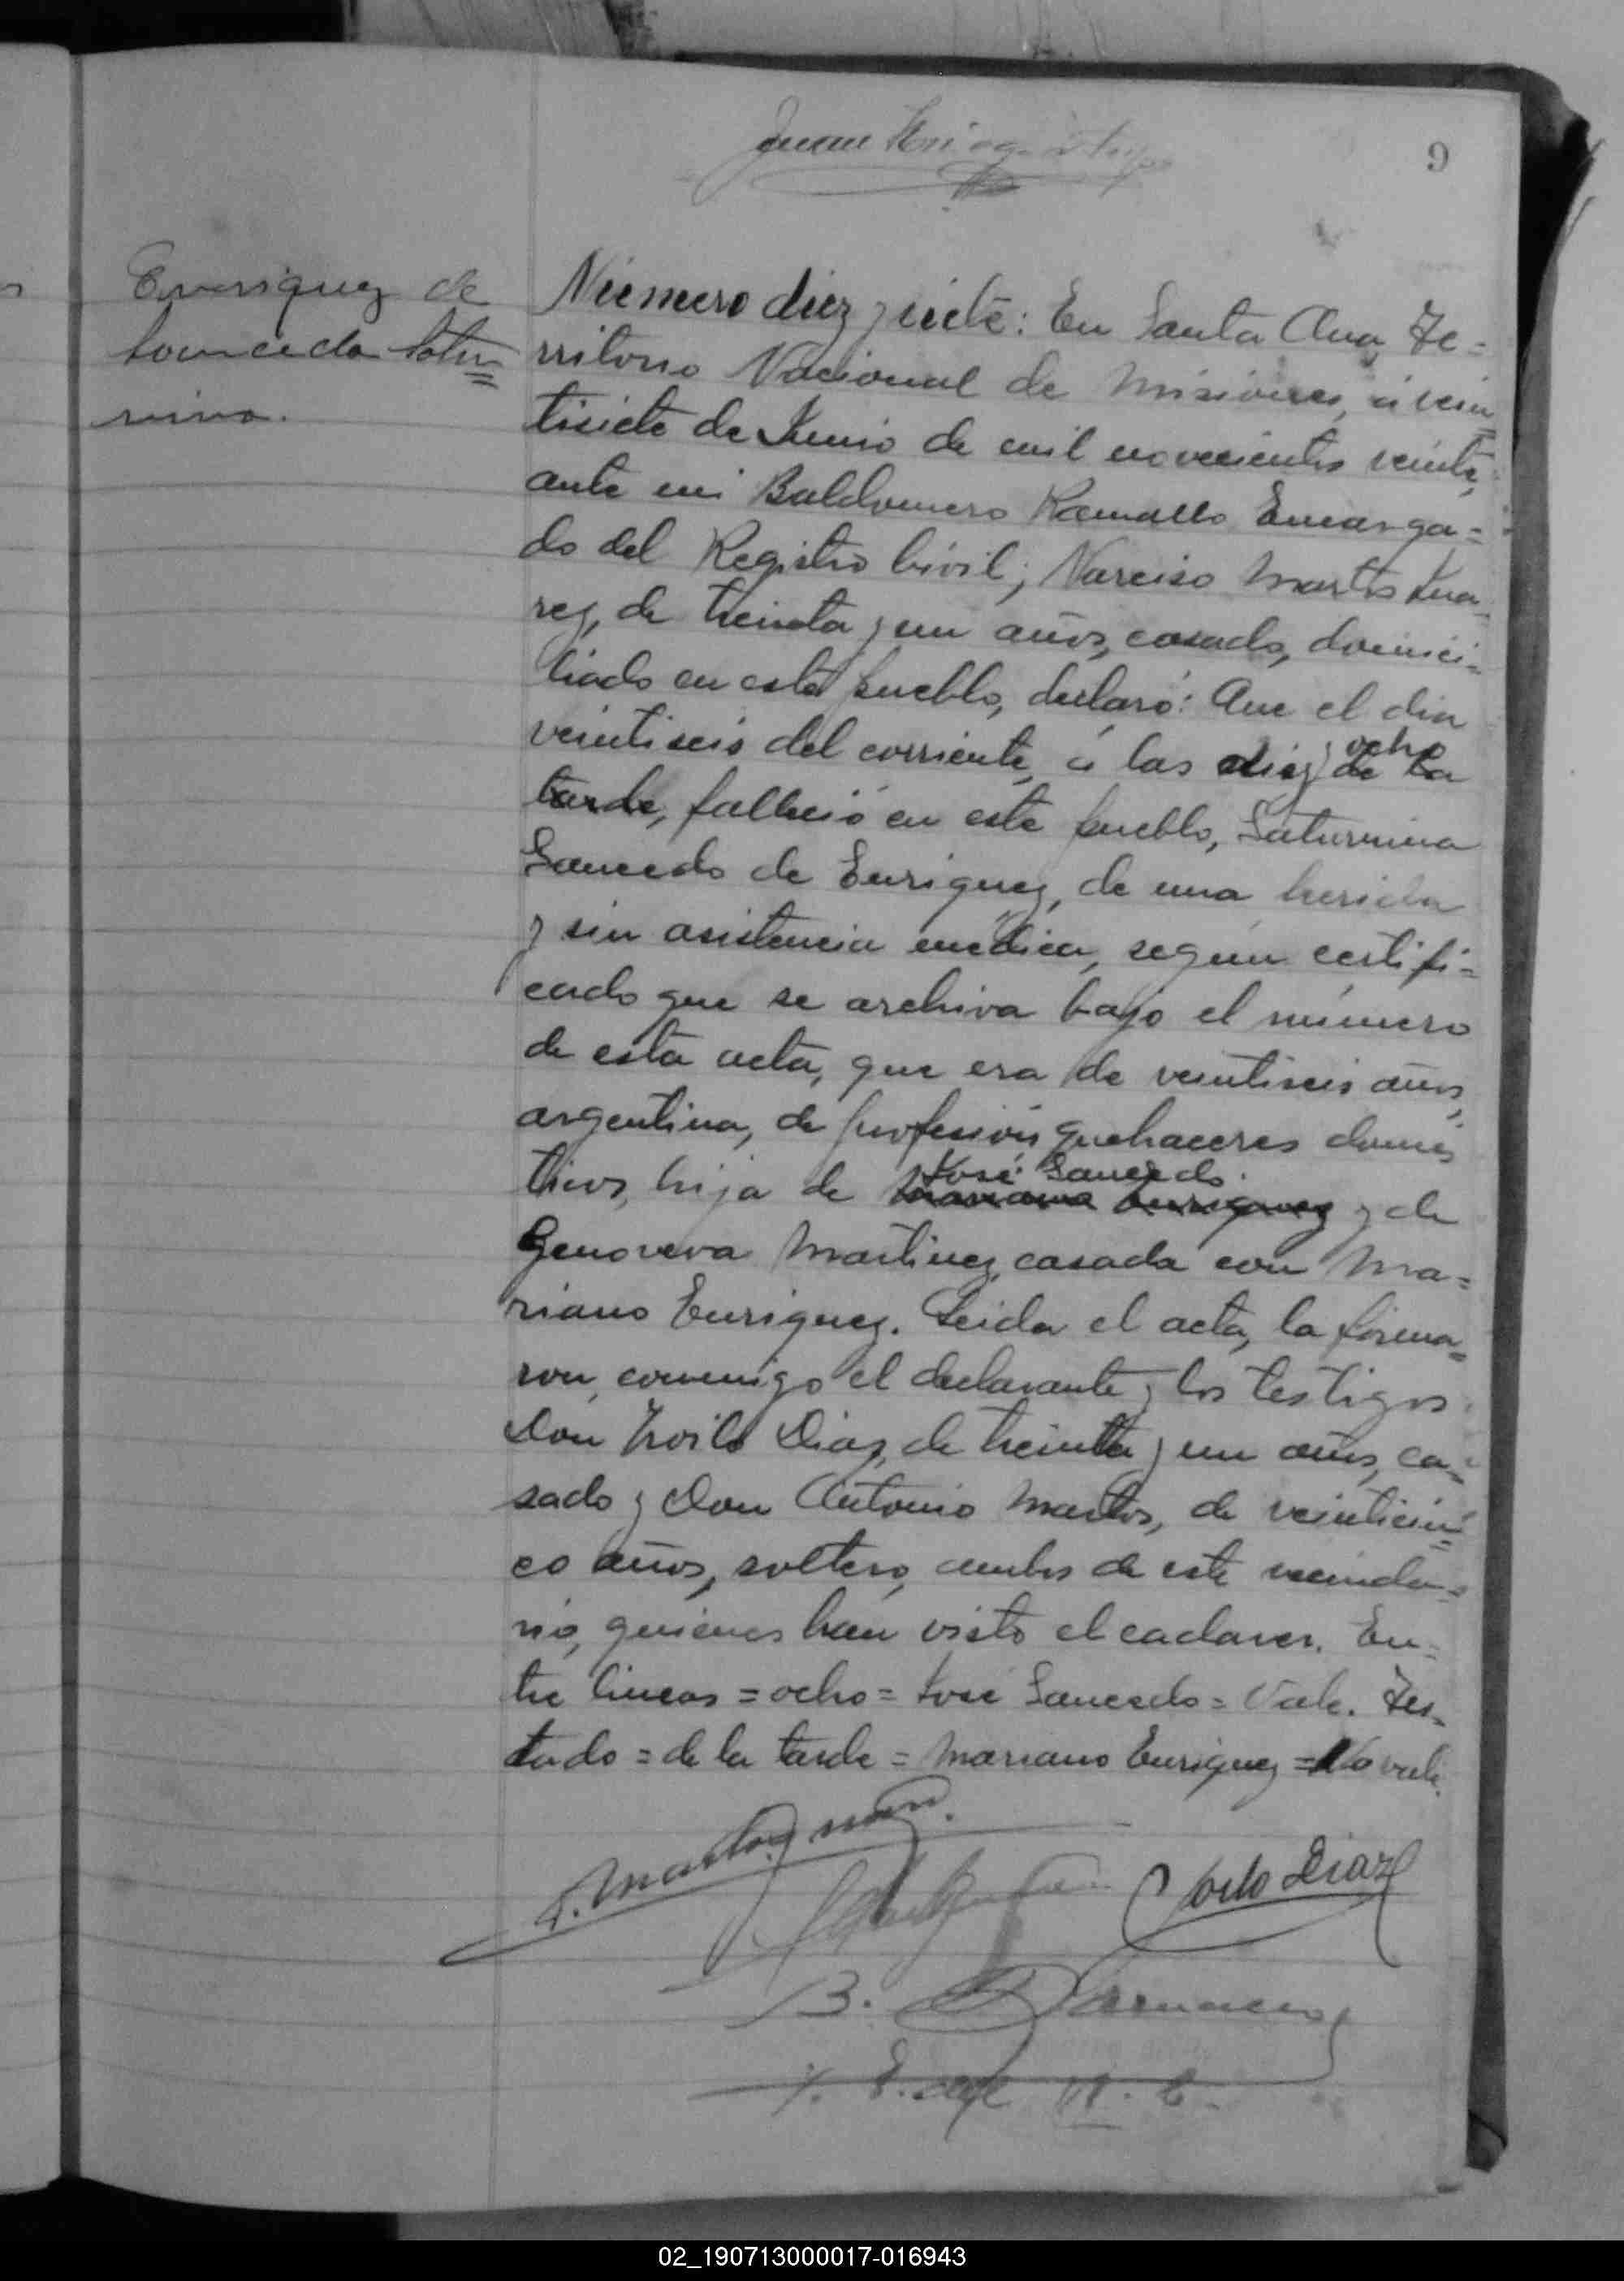 Juan
9
Enrriquez de
Sauceda Satur
nina.
Número diez y siete: En Santa Ana, Te=
rritorio Nacional de Misiones, á vein
tisiete de Junio de mil novecientos veinte,
ante mi Baldomero Ramallo Encarga=
do del Registro Civil; Narciso Martos Jua
rez, de treinta y un años, casado, domici=
liado en este pueblo, declaró: Que el dia
veintiseis del corriente, á las diez y ocho de la
tarde, falleció en este pueblo, Saturnina
Saucedo de Enriquez, de una herida
y sin asistencia médica, según certifi=
cado que se archiva bajo el número
de esta acta, que era de veintiseis años,
argentina, de profesión quehaceres domés
ticos, hija de José Saucedo Mariano Enriquez y de
Genoveva Martinez, casada con Ma=
riano Enriquez. Leida el acta, la firma=
ron conmigo el declarante y los testigos
Don Zoilo Diaz, de treinta y un años, ca=
sado y Don Antonio Martos, de veinticin=
co años, soltero, ambos de este vecinda=
rio, quienes han visto el cadaver. En=
tre lineas = ocho = José Saucedo = Vale. Tes=
tado = de la tarde = Mariano Enriquez = No vale.
Zoilo Diaz
B.
02_190713000017-016943